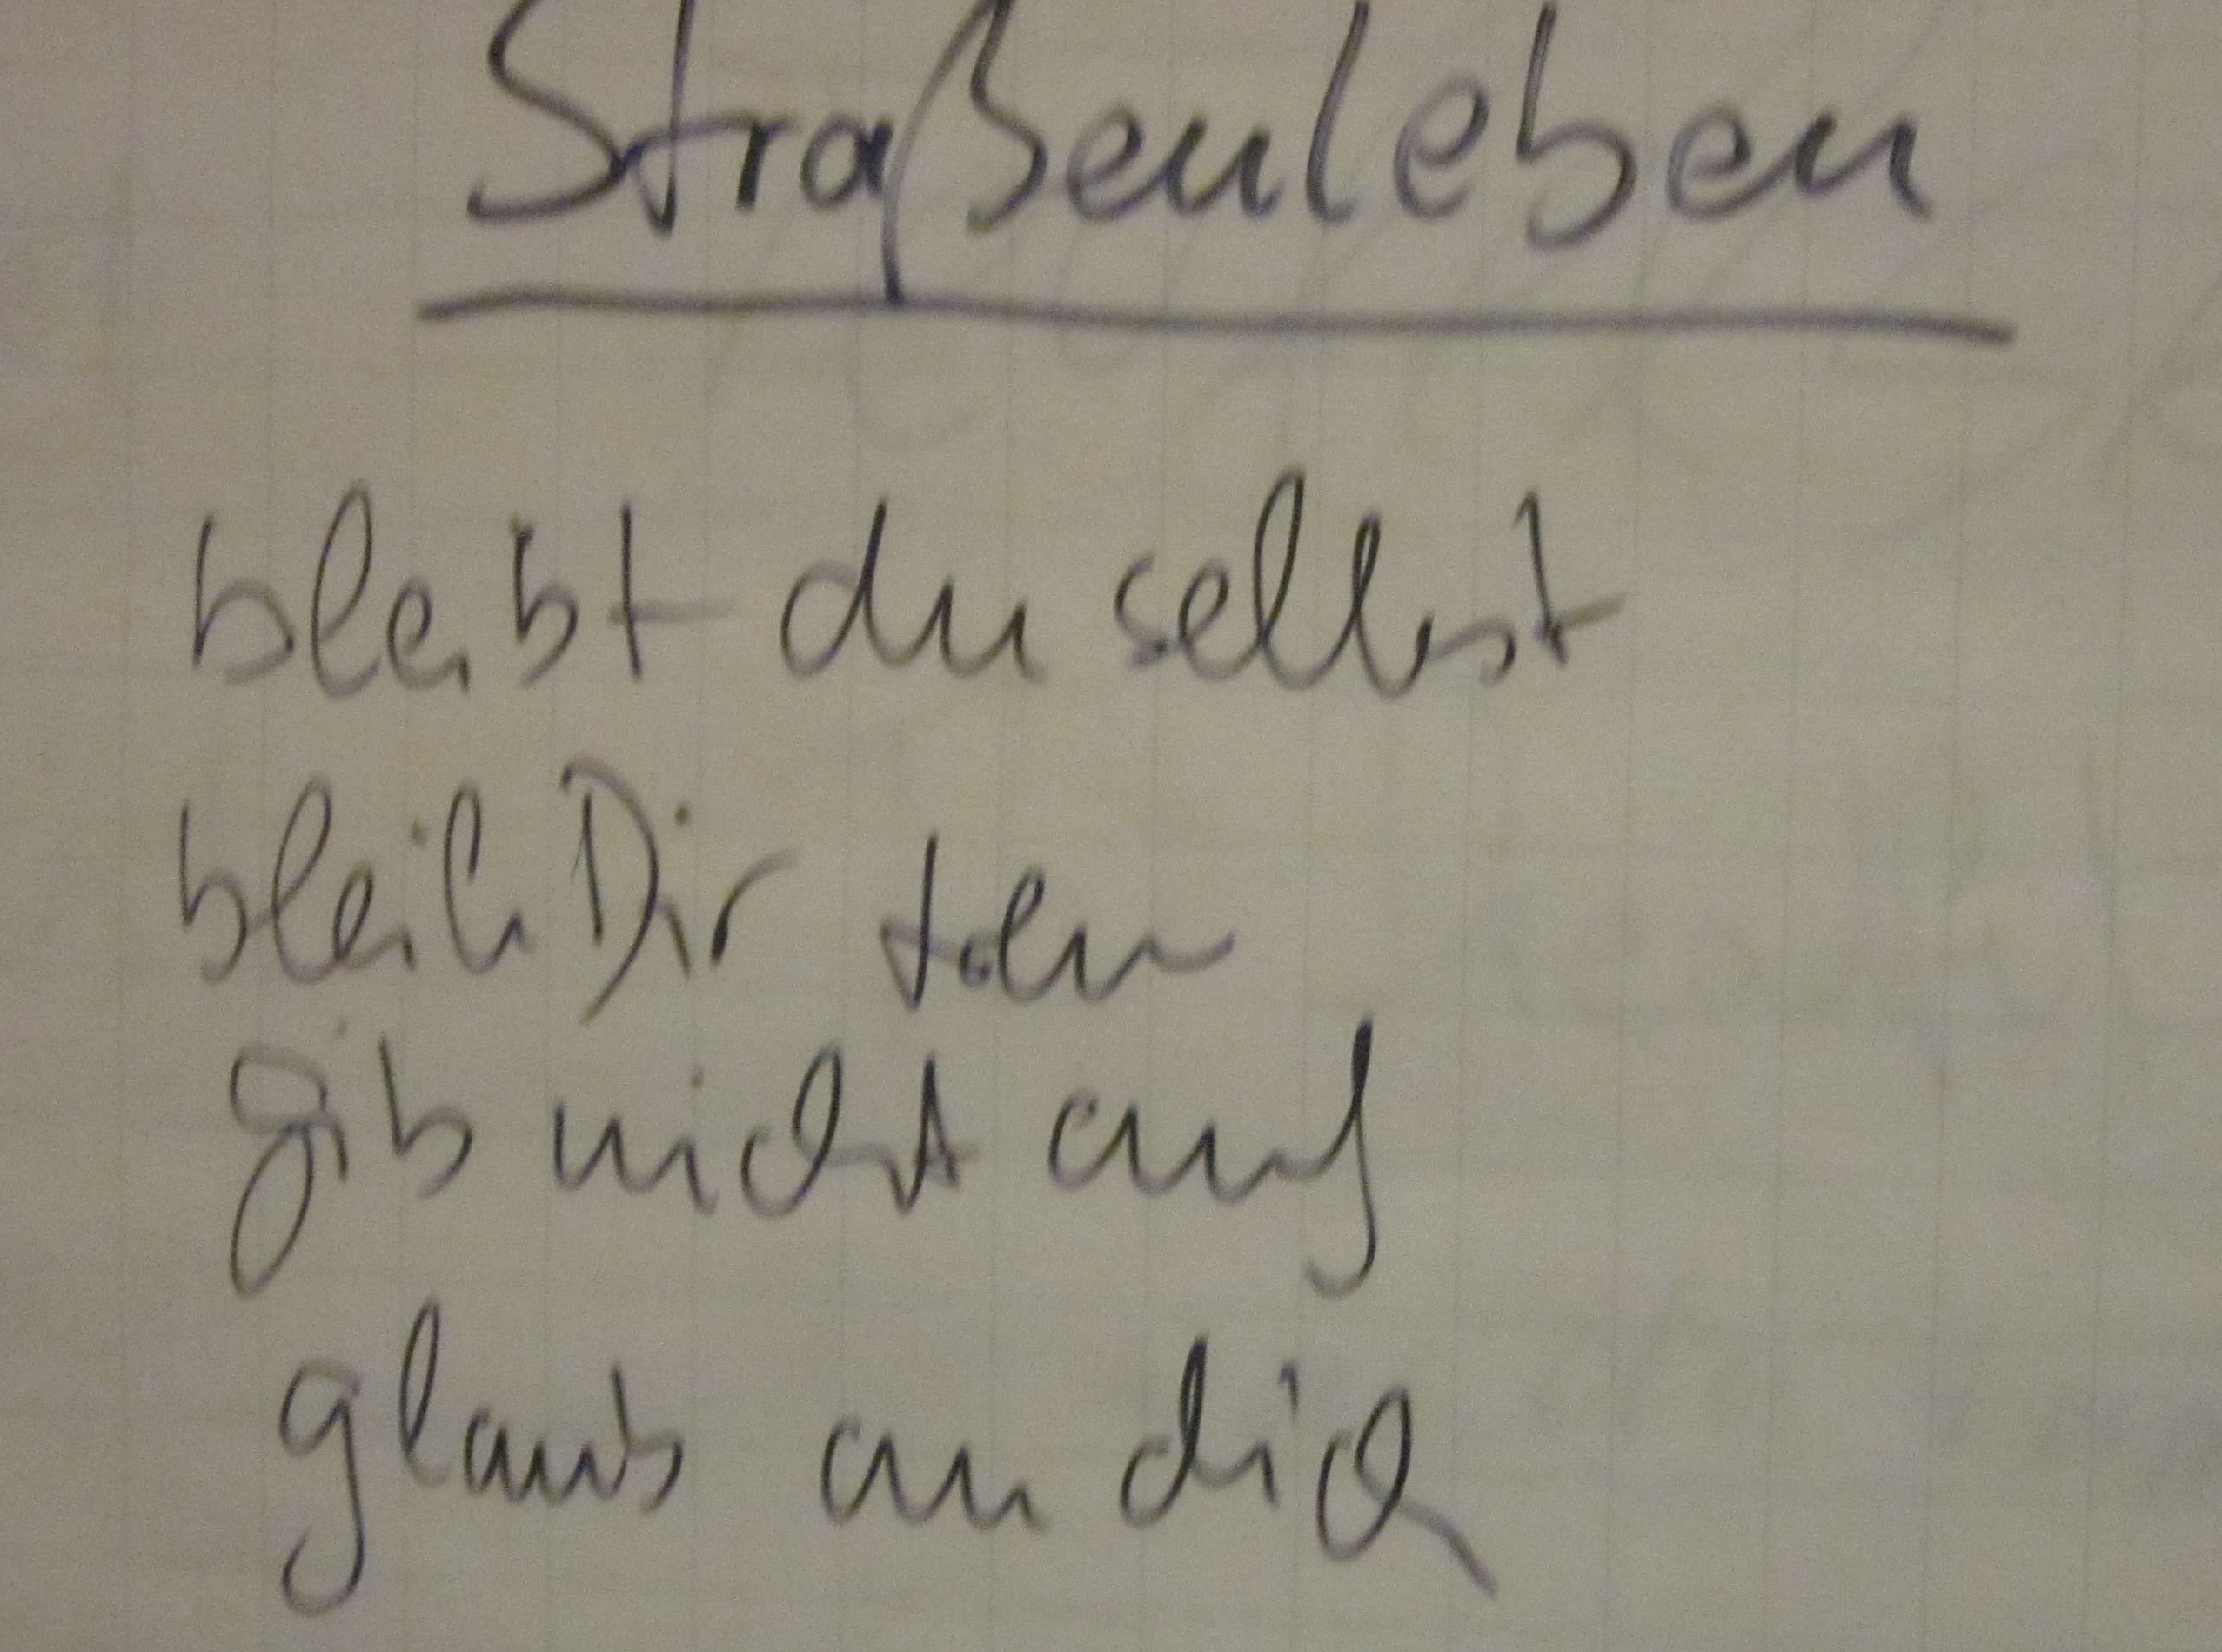 Straßenleben
bleibt du selbst
bleib Dir treu
gib nicht auf
glaub an dich